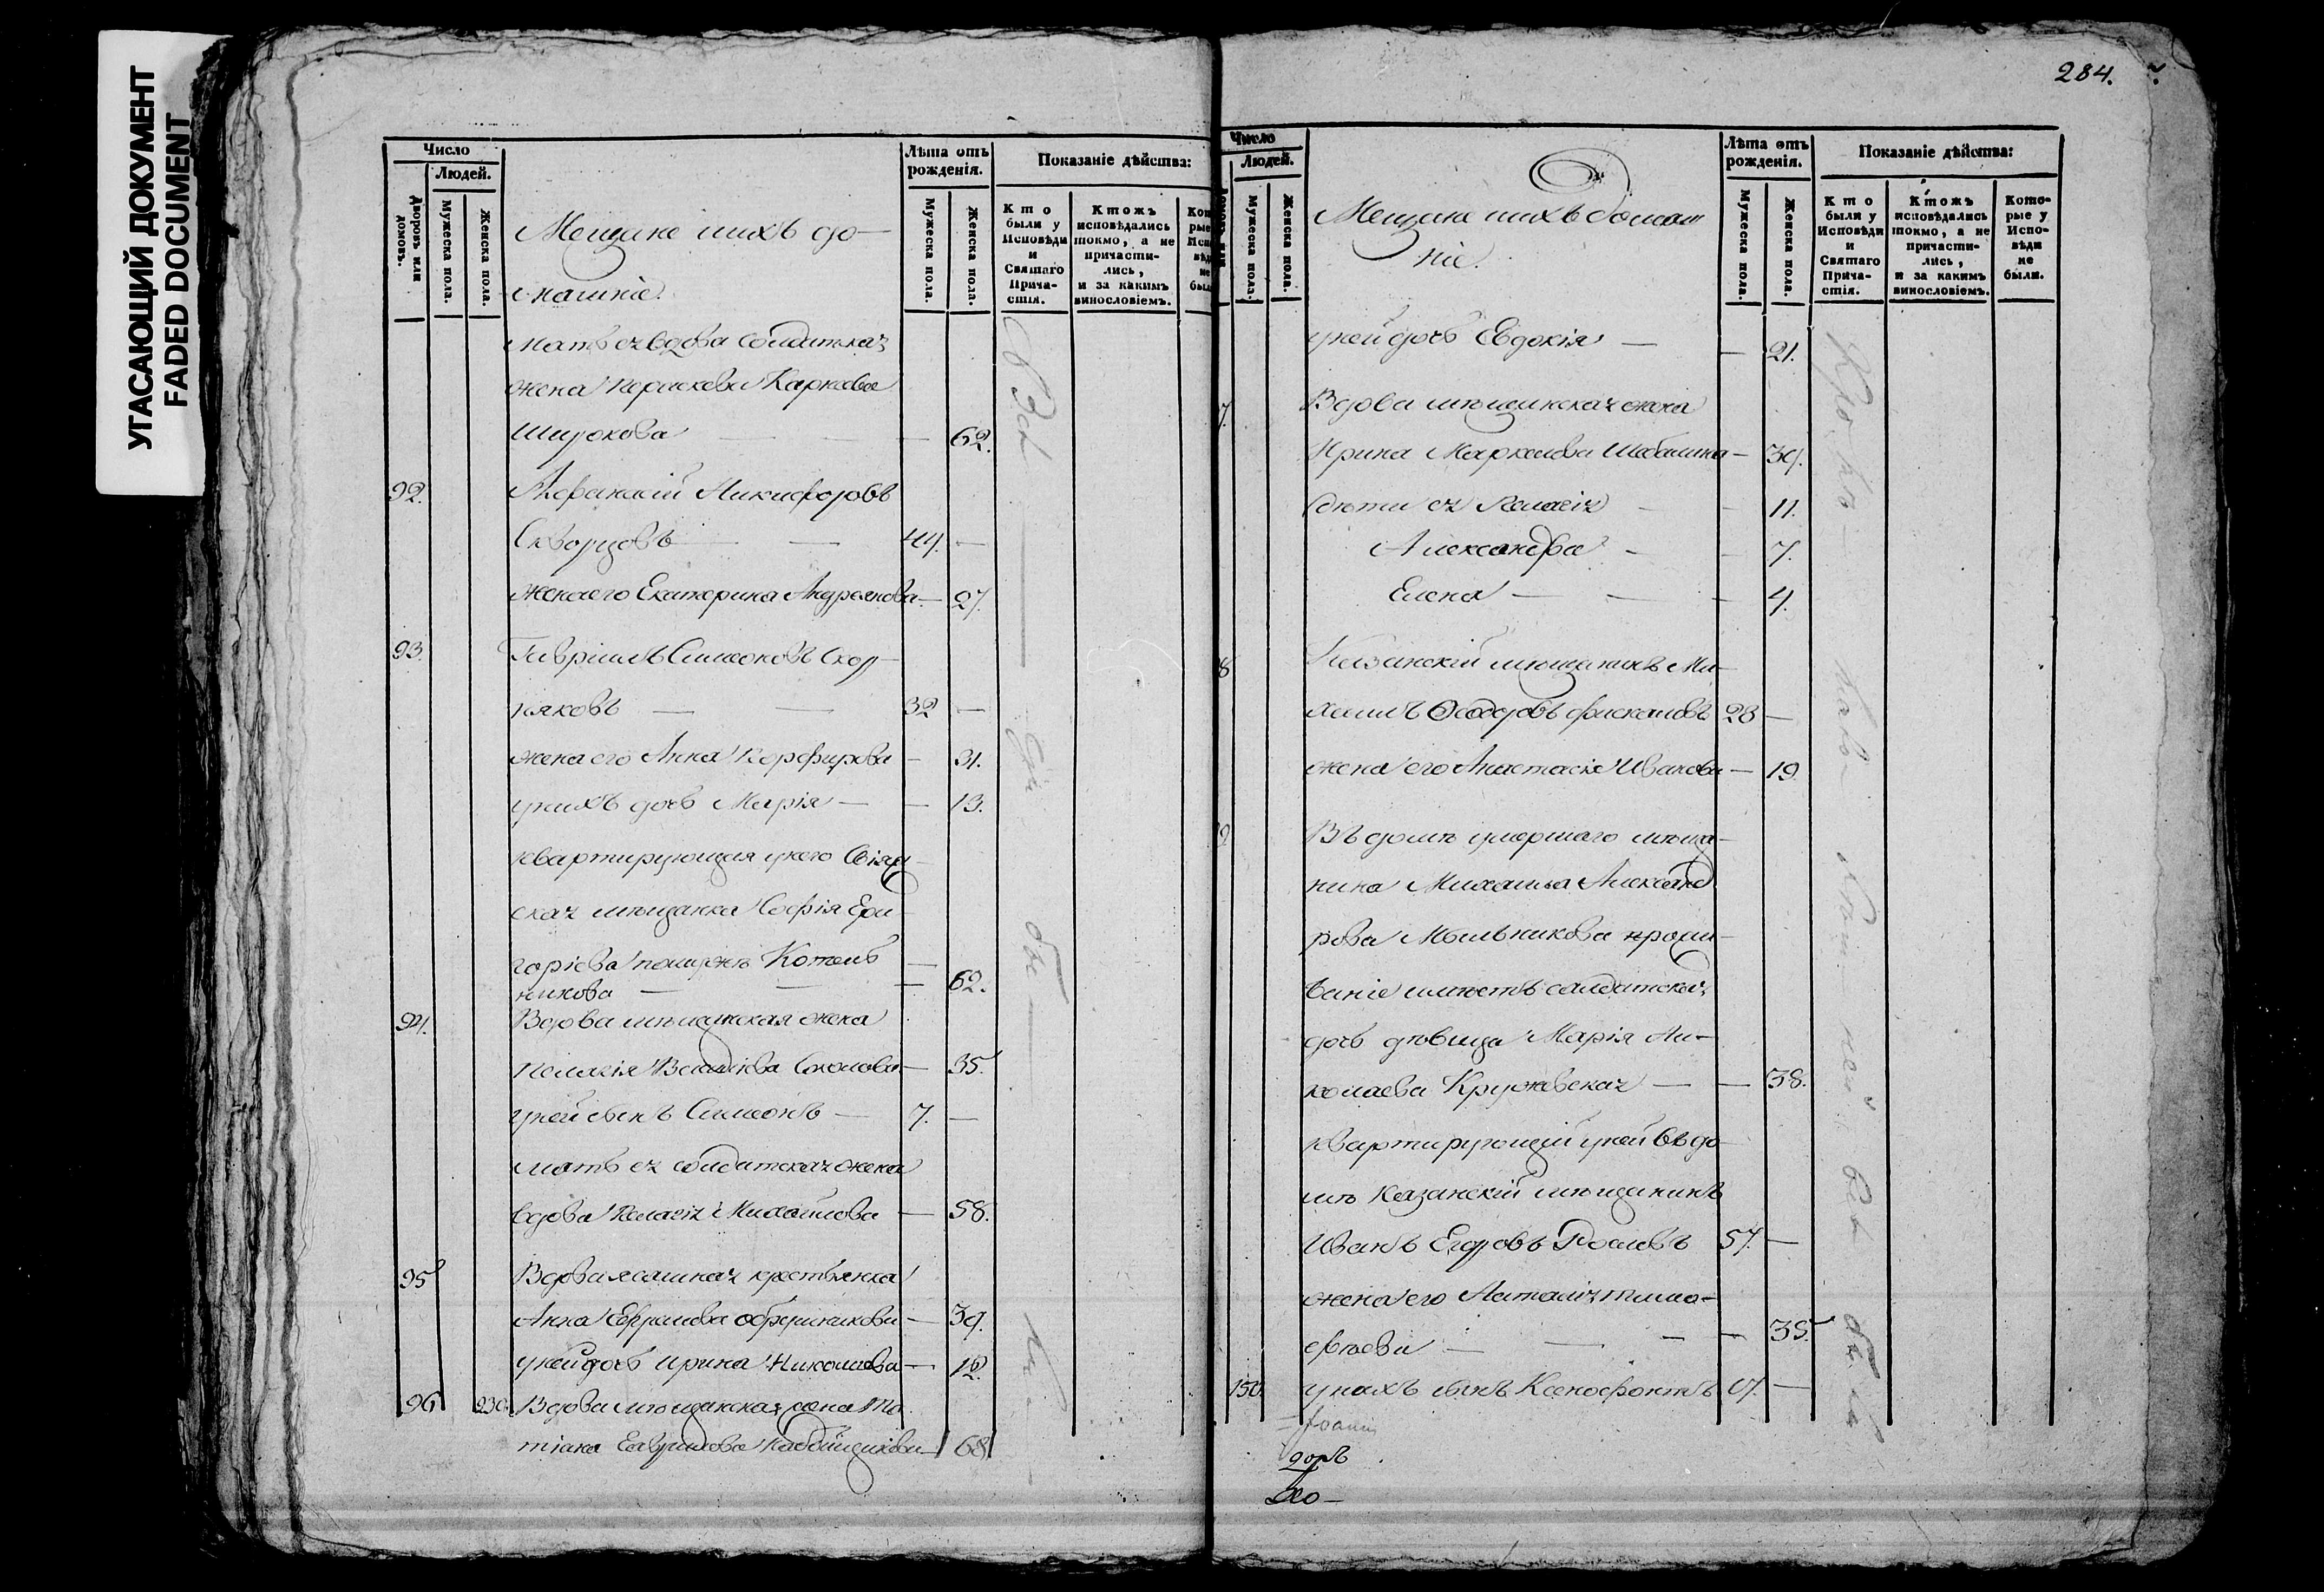 УГАСАЮЩИЙ ДОКУМЕНТ
FADED DOCUMENT
Число
Людей.
Дворовъ или домовъ.
Мужеска пола.
Женска пола.
Лѣта отъ рожденія.
Мужеска пола.
Женска пола.
Показаніе дѣйства:
Кто были у Исповѣди и Святаго Прича-стія.
Ктожъ исповѣдались токмо, а не причасти-лись, и за какимъ винословіемъ.
Мещане ихъ до-
машніе.
мать ея вдова солдатская
жена Параскева Карпова
Широкова — — 62.
92. Афанасій Никифоровъ
Скворцовъ — 44. —
жена его Екатерина Андреянова — 27.
93. Гавріилъ Симеоновъ Скор-
няковъ — 32 —
жена его Анна Порфирова — 31.
у нихъ дочь Марія — — 13.
квартирующая у него Свіяж-
ская мѣщанка Софія Гри-
горіева Котель-
никова — — 62.
94. Вдова мѣщанская жена
Пелагія Соколова — 35.
у ней сынъ Симеонъ — 7. —
мать ея солдатская жена
вдова Пелагія Михайлова — 58.
95 Вдова ясашная крестьянка
Анна Ефремова — 39.
у ней дочь Ирина Николаева — 12.
96 230. Вдова мѣщанская жена Та-
тіана — 68
284.
Число
Людей.
Мужеска пола.
Женска пола.
Лѣта отъ рожденія.
Мужеска пола.
Женска пола.
Показаніе дѣйства:
Кто были у Исповѣди и Святаго Прича-стія.
Ктожъ исповѣдались токмо, а не причасти-лись, и за какимъ винословіемъ.
Кото-рые у Испо-вѣди не были.
Мещане ихъ домаш
ніе.
у ней дочь Евдокія — — 21.
7. Вдова мѣщанская жена
Ирина Маркелова Шабалина — 39.
дѣти ея Пелагія — — 11.
Александра — — 7.
Елена — — — 4.
8 Казанскій мѣщанинъ Ми-
хаилъ Ѳеодоровъ Фискаловъ 23 —
жена его Анастасія Иванова — 19.
9 Въ домѣ умершаго мѣща-
нина Михаила Александ
рова Мыльникова прожи-
ваніе имѣетъ солдатская
дочь дѣвица Марія Ни-
колаева Кружевская — — 38.
квартирующій у ней въ до-
мѣ Казанскій мѣщанинъ
Иванъ Егоровъ 57. —
жена его Наталія Тимо-
ѳѣева — — — 35.
150. у нихъ сынъ Ксенофонтъ 17. —